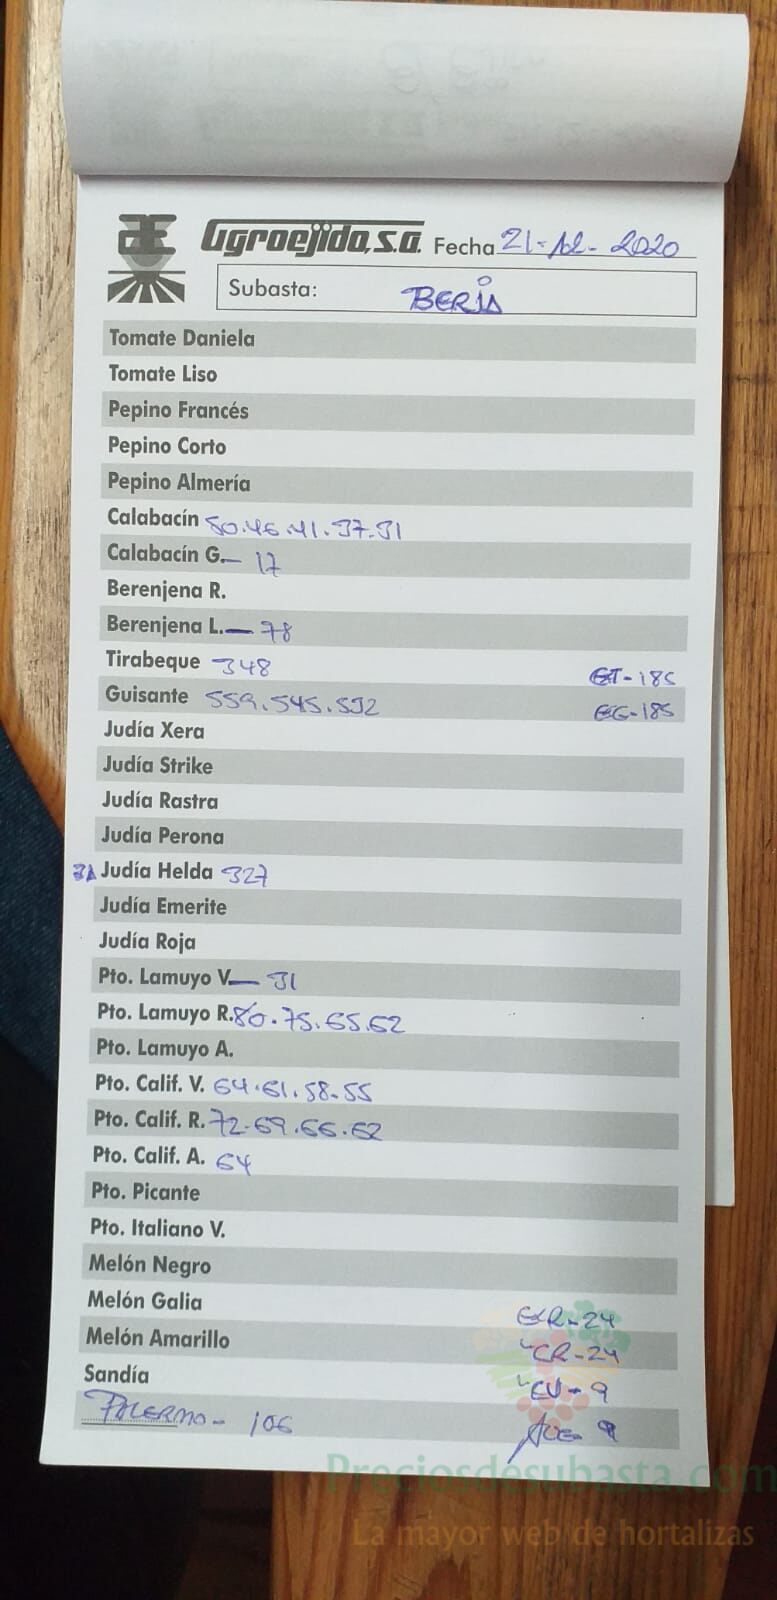 Agroejido, s.a. Fecha 21-12-2020
Subasta: BERJA
Tomate Daniela
Tomate Liso
Pepino Francés
Pepino Corto
Pepino Almería
Calabacín 50.46.41.37.31
Calabacín G.— 17
Berenjena R.
Berenjena L.— 78
Tirabeque 348 GT-185
Guisante 559.545.532 GG-185
Judía Xera
Judía Strike
Judía Rastra
Judía Perona
Judía Helda 327
Judía Emerite
Judía Roja
Pto. Lamuyo V.— 31
Pto. Lamuyo R. 80.75.65.62
Pto. Lamuyo A.
Pto. Calif. V. 64.61.58.55
Pto. Calif. R. 72.69.66.62
Pto. Calif. A. 64
Pto. Picante
Pto. Italiano V.
Melón Negro
Melón Galia
-24
Melón Amarillo CR-24
Sandía - 9
PALERMO - 106 9
Preciosdesubasta.com
La mayor web de hortalizas